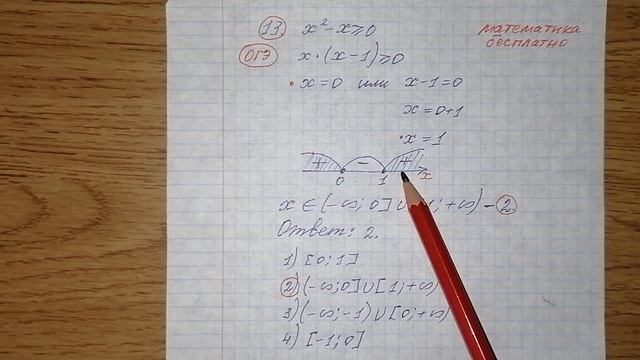 13. x² - x ≥ 0
математика бесплатно
ОГЭ x · (x - 1) ≥ 0
x = 0 или x - 1 = 0
x = 0 + 1
x = 1
+ - +
0 1 x
x ∈ (-∞; 0] ∪ 1; +∞) - 2.
Ответ: 2.
1) [0; 1]
2) (-∞; 0] ∪ [1; +∞)
3) (-∞; -1) ∪ [0; +∞)
4) [-1; 0]